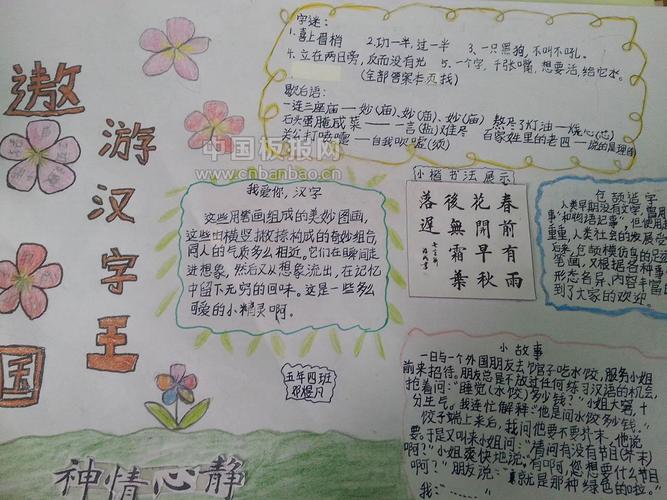 遨游汉字王国
字迷:
1.喜上眉梢 2.功一半,过一半 3、一只黑狗,不叫不吼。
4.立在两日旁,反而没有光 5.一个字,千张嘴,想要活,给它水.
(全部答案本页找)
歇后语:
一连三座庙——妙(庙)、妙(庙)、妙(庙) 熬尽了灯油——烧心(芯)
石头蛋腌咸菜——一言(盐)难尽 百家姓里的老四——说的是理
关公打喷嚏——自我吹嘘(须)
中国板报网
www.cnbanbao.cn
小楷书法展示
春前有雨
花开早秋
後無霜葉
落遲
我爱你,汉字
这些用笔画组成的美妙图画,
这些由横竖撇捺构成的奇妙组合,
同人的气质多么相近。它们在瞬间走
进想象,然后又从想象流出,在记忆
中留下无穷的回味。这是一些多么
可爱的小精灵啊。
仓颉造字
人类早期没有文字,
事"和物语记事",但使用
重重,人类社会的发展
后来,仓颉模仿鸟的足迹
笔画,又根据各种事
形态名异、内容丰富的
到了大家的欢迎
五年四班
小故事
一日与一个外国朋友去馆子吃水饺,服务小姐
前来招待。朋友总是不放过任何练习汉语的机会,
抢着问:"睡觉(水饺)多少钱?"小姐大窘,十
分生气。我连忙解释:"他是问水饺多少钱。"
饺子端上来后,我问他要不要芥末,他说
要。于是又叫来小姐问:"请问有没有节目(芥末)
啊?"小姐爽快地说:"有啊,您想要什么节目
啊?"朋友说:"就是那种绿色的啦。"
我:……
神情心静